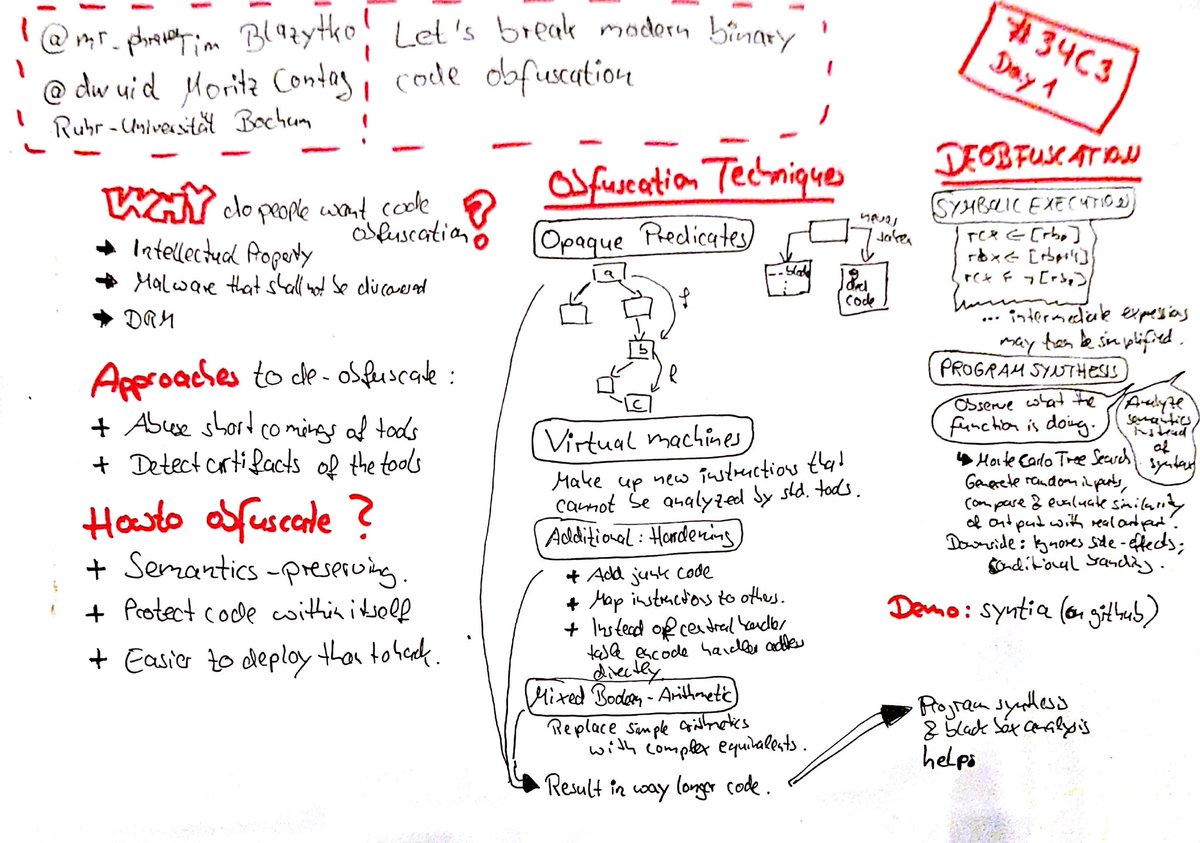 @mr_phrazer Tim Blazytko
@dwuid Moritz Contag
Ruhr-Universität Bochum
Let's break modern binary
code obfuscation
#34C3
Day 1
WHY do people want code
obfuscation?
→ Intellectual Property
→ Malware that shall not be discovered
→ DRM
Approaches to de-obfuscate:
+ Abuse shortcomings of tools
+ Detect artifacts of the tools
How to obfuscate?
+ Semantics-preserving.
+ Protect code within itself
+ Easier to deploy than to hack.
Obfuscation Techniques
Opaque Predicates
a
f
b
c
never
taken
dead
code
Virtual machines
Make up new instructions that
cannot be analyzed by std. tools.
Additional: Hardening
+ Add junk code
+ Map instructions to others.
+ Instead of central handler
table encode handler addr
directly
Mixed Boolean-Arithmetic
Replace simple arithmetics
with complex equivalents.
Result in way longer code.
DEOBFUSCATION
SYMBOLIC EXECUTION
rcx ← [rbp]
rbx ←
rcx ← ¬
... intermediate expressions
may then be simplified.
PROGRAM SYNTHESIS
Observe what the
function is doing.
Analyze
semantics
instead
of
syntax
↳ Monte Carlo Tree Search
Generate random inputs,
compare & evaluate similarity
of output with real output.
Downside: Ignores side-effects;
conditional branching.
Demo: syntia (on github)
Program synthesis
& black box analysis
helps